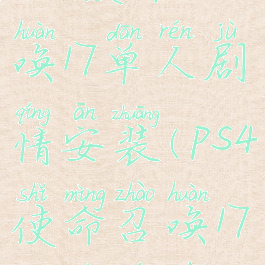 huàn dān rén jù
唤17单人剧
qíng ān zhuāng
情安装(PS4
shǐ mìng zhào huàn
使命召唤17